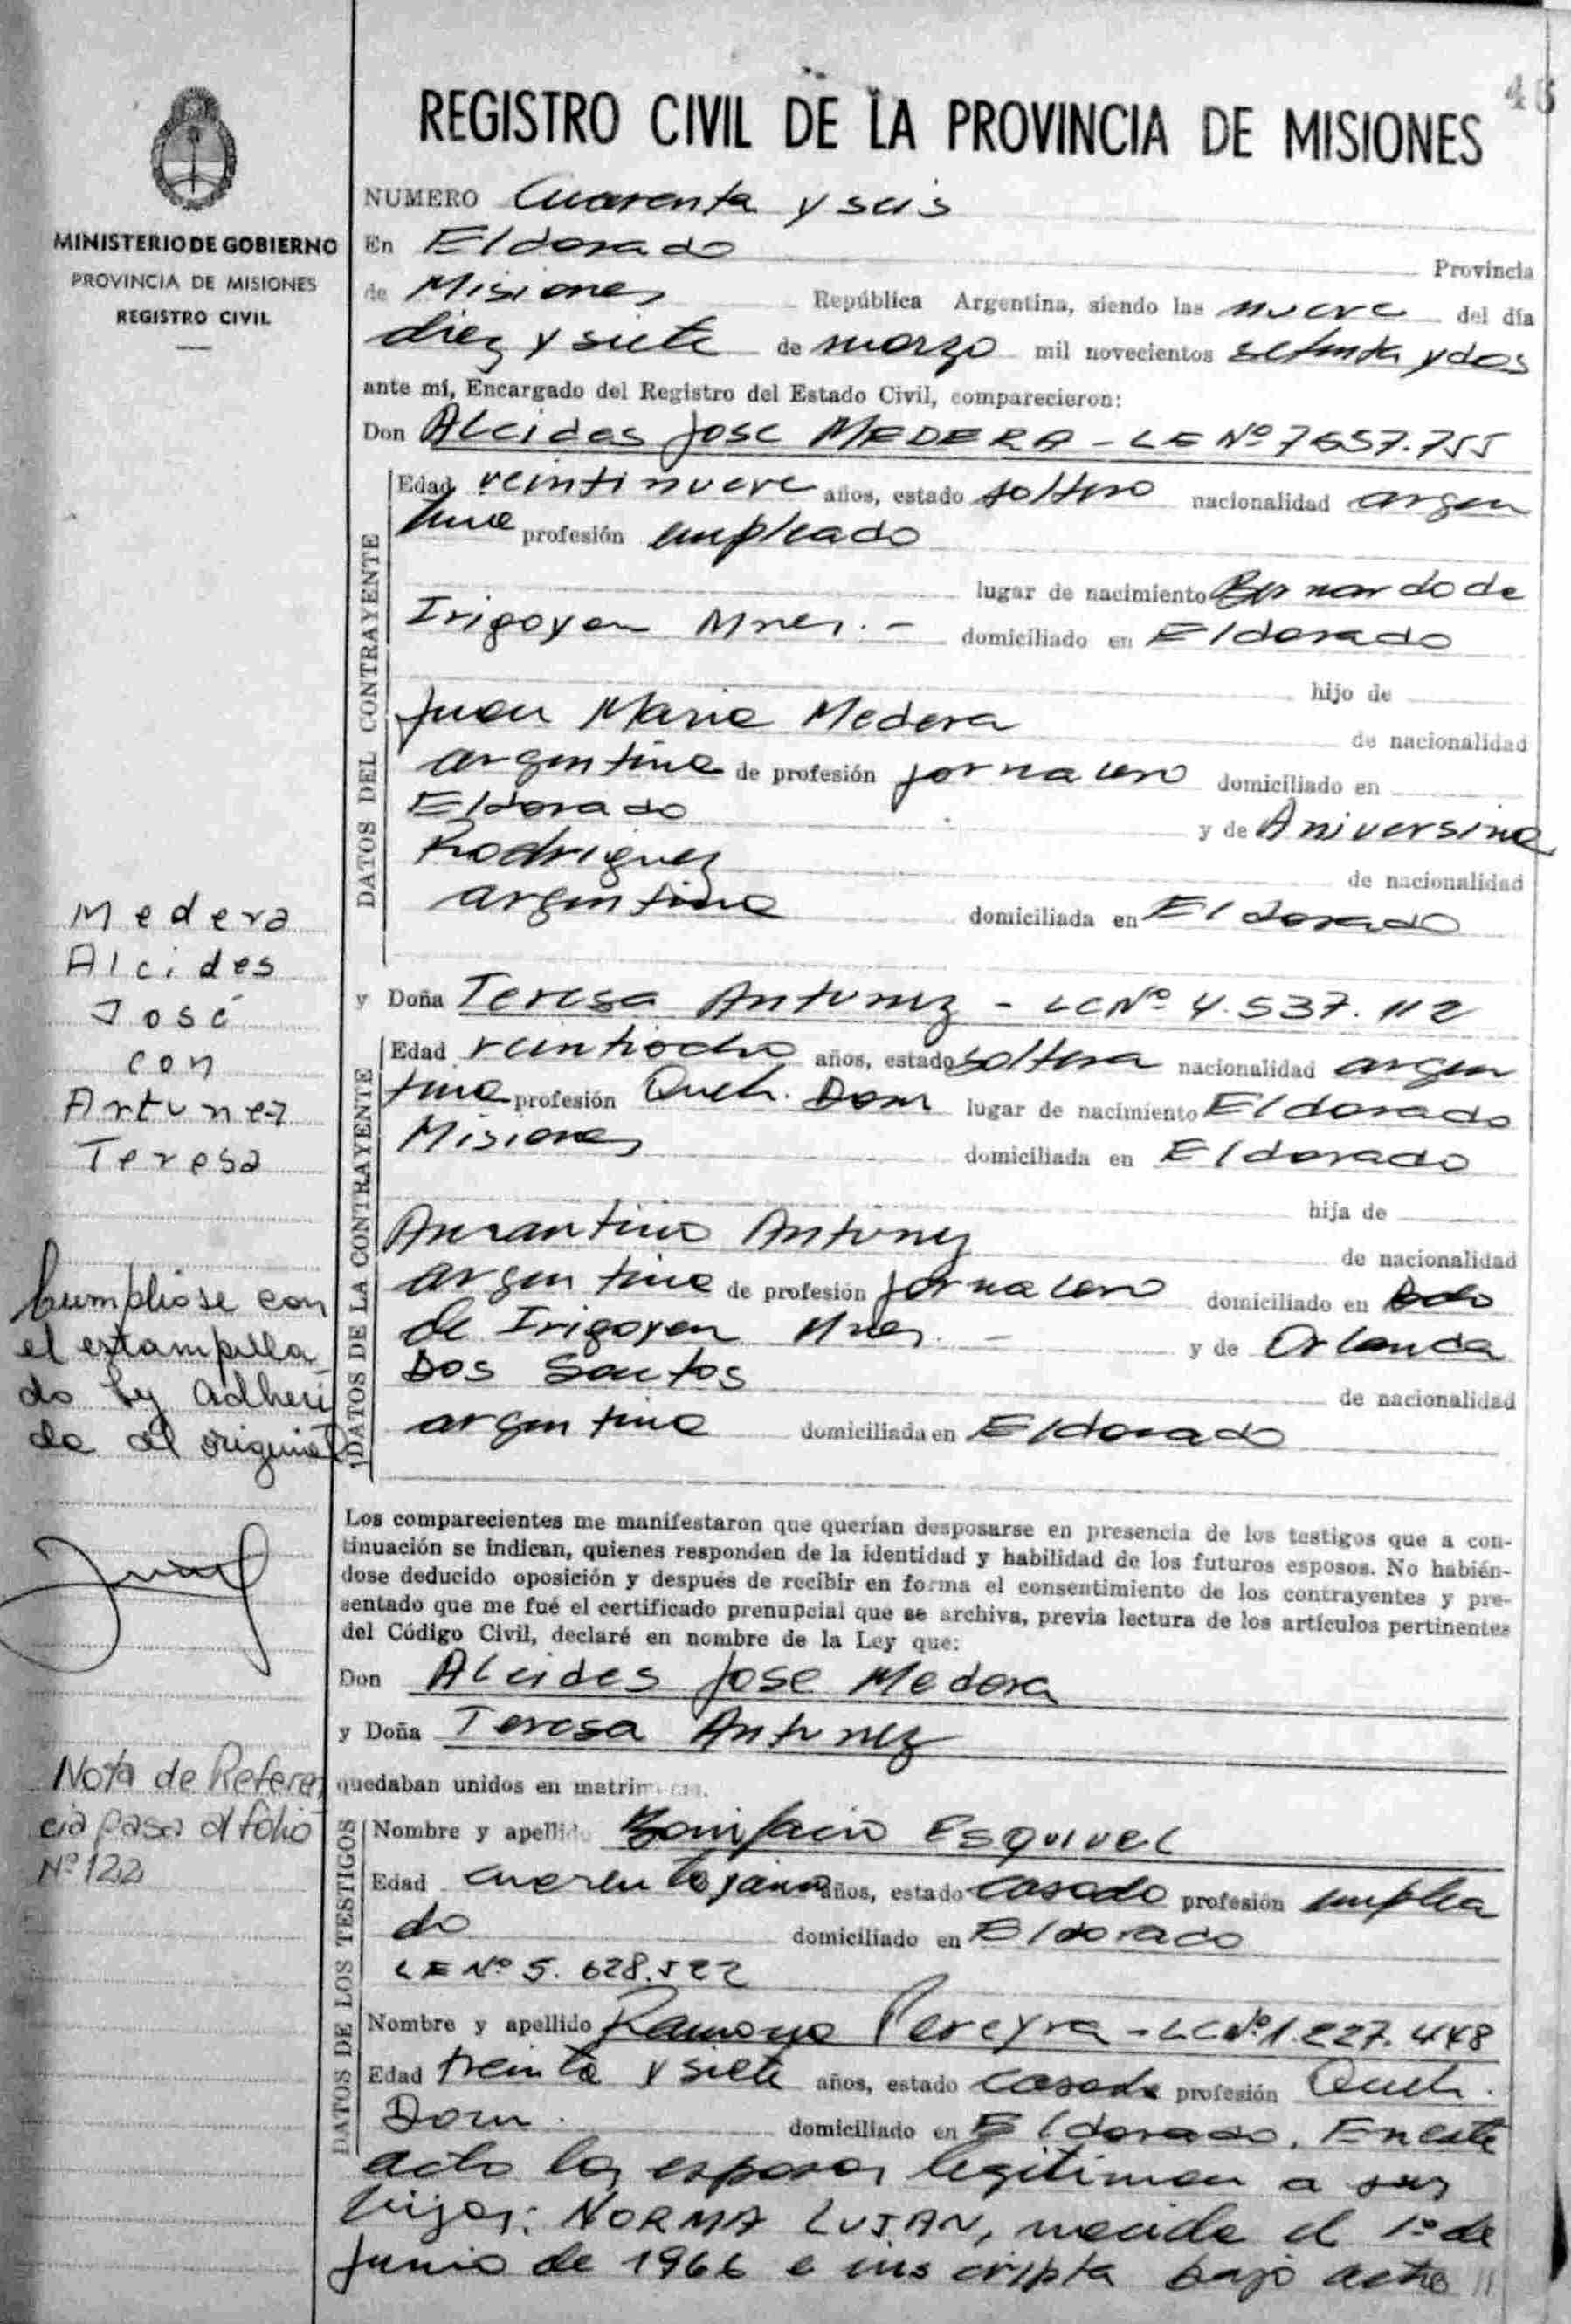 46
REGISTRO CIVIL DE LA PROVINCIA DE MISIONES
MINISTERIO DE GOBIERNO
PROVINCIA DE MISIONES
REGISTRO CIVIL
NUMERO Cuarenta y seis
En Eldorado Provincia
de Misiones República Argentina, siendo las nueve del día
diez y siete de marzo mil novecientos setenta y dos
ante mí, Encargado del Registro del Estado Civil, comparecieron:
Don Alcides Jose MEDERA - LE Nº 7557.755
DATOS DEL CONTRAYENTE
Edad veintinueve años, estado soltero nacionalidad argen
tina profesión empleado
lugar de nacimiento Bernardo de
Irigoyen Mnes. - domiciliado en Eldorado
hijo de
Juan Maria Medera
de nacionalidad
argentina de profesión jornalero domiciliado en
Eldorado
y de Aniversina
Rodriguez
de nacionalidad
argentina domiciliada en Eldorado
Medera
Alcides
José
con
Artunez
Teresa
y Doña Teresa Antunez - LC Nº 4.537.112
DATOS DE LA CONTRAYENTE
Edad veintiocho años, estado soltera nacionalidad argen
tina profesión Queh. Dom lugar de nacimiento Eldorado
Misiones domiciliada en Eldorado
hija de
Antunez
de nacionalidad
argentina de profesión jornalero domiciliado en Bdo
de Irigoyen Mnes. - y de Orlanda
Dos Santos
de nacionalidad
argentina domiciliada en Eldorado
Cumpliose con
el estampilla
do ley adheri
do al original
Los comparecientes me manifestaron que querían desposarse en presencia de los testigos que a con-
tinuación se indican, quienes responden de la identidad y habilidad de los futuros esposos. No habién-
dose deducido oposición y después de recibir en forma el consentimiento de los contrayentes y pre-
sentado que me fué el certificado prenupcial que se archiva, previa lectura de los artículos pertinentes
del Código Civil, declaré en nombre de la Ley que:
Don Alcides Jose Medera
y Doña Teresa Antunez
quedaban unidos en matrimonio.
Nota de Referen
cia pasa al folio
Nº 122
DATOS DE LOS TESTIGOS
Nombre y apellido Bonifacio ESQUIVEL
Edad años, estado casado profesión emplea
do domiciliado en Eldorado
LE Nº 5.628.522
Nombre y apellido Ramona Pereyra - LC Nº 1.227.448
Edad treinta y siete años, estado casada profesión Queh.
Dom. domiciliado en Eldorado. En este
acto los esposos legitiman a sus
hijos: NORMA LUJAN, nacida el 1º de
junio de 1966 e inscripta bajo acta //